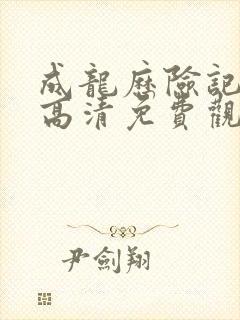 成龍歷險記
高清免費觀
尹劍翔